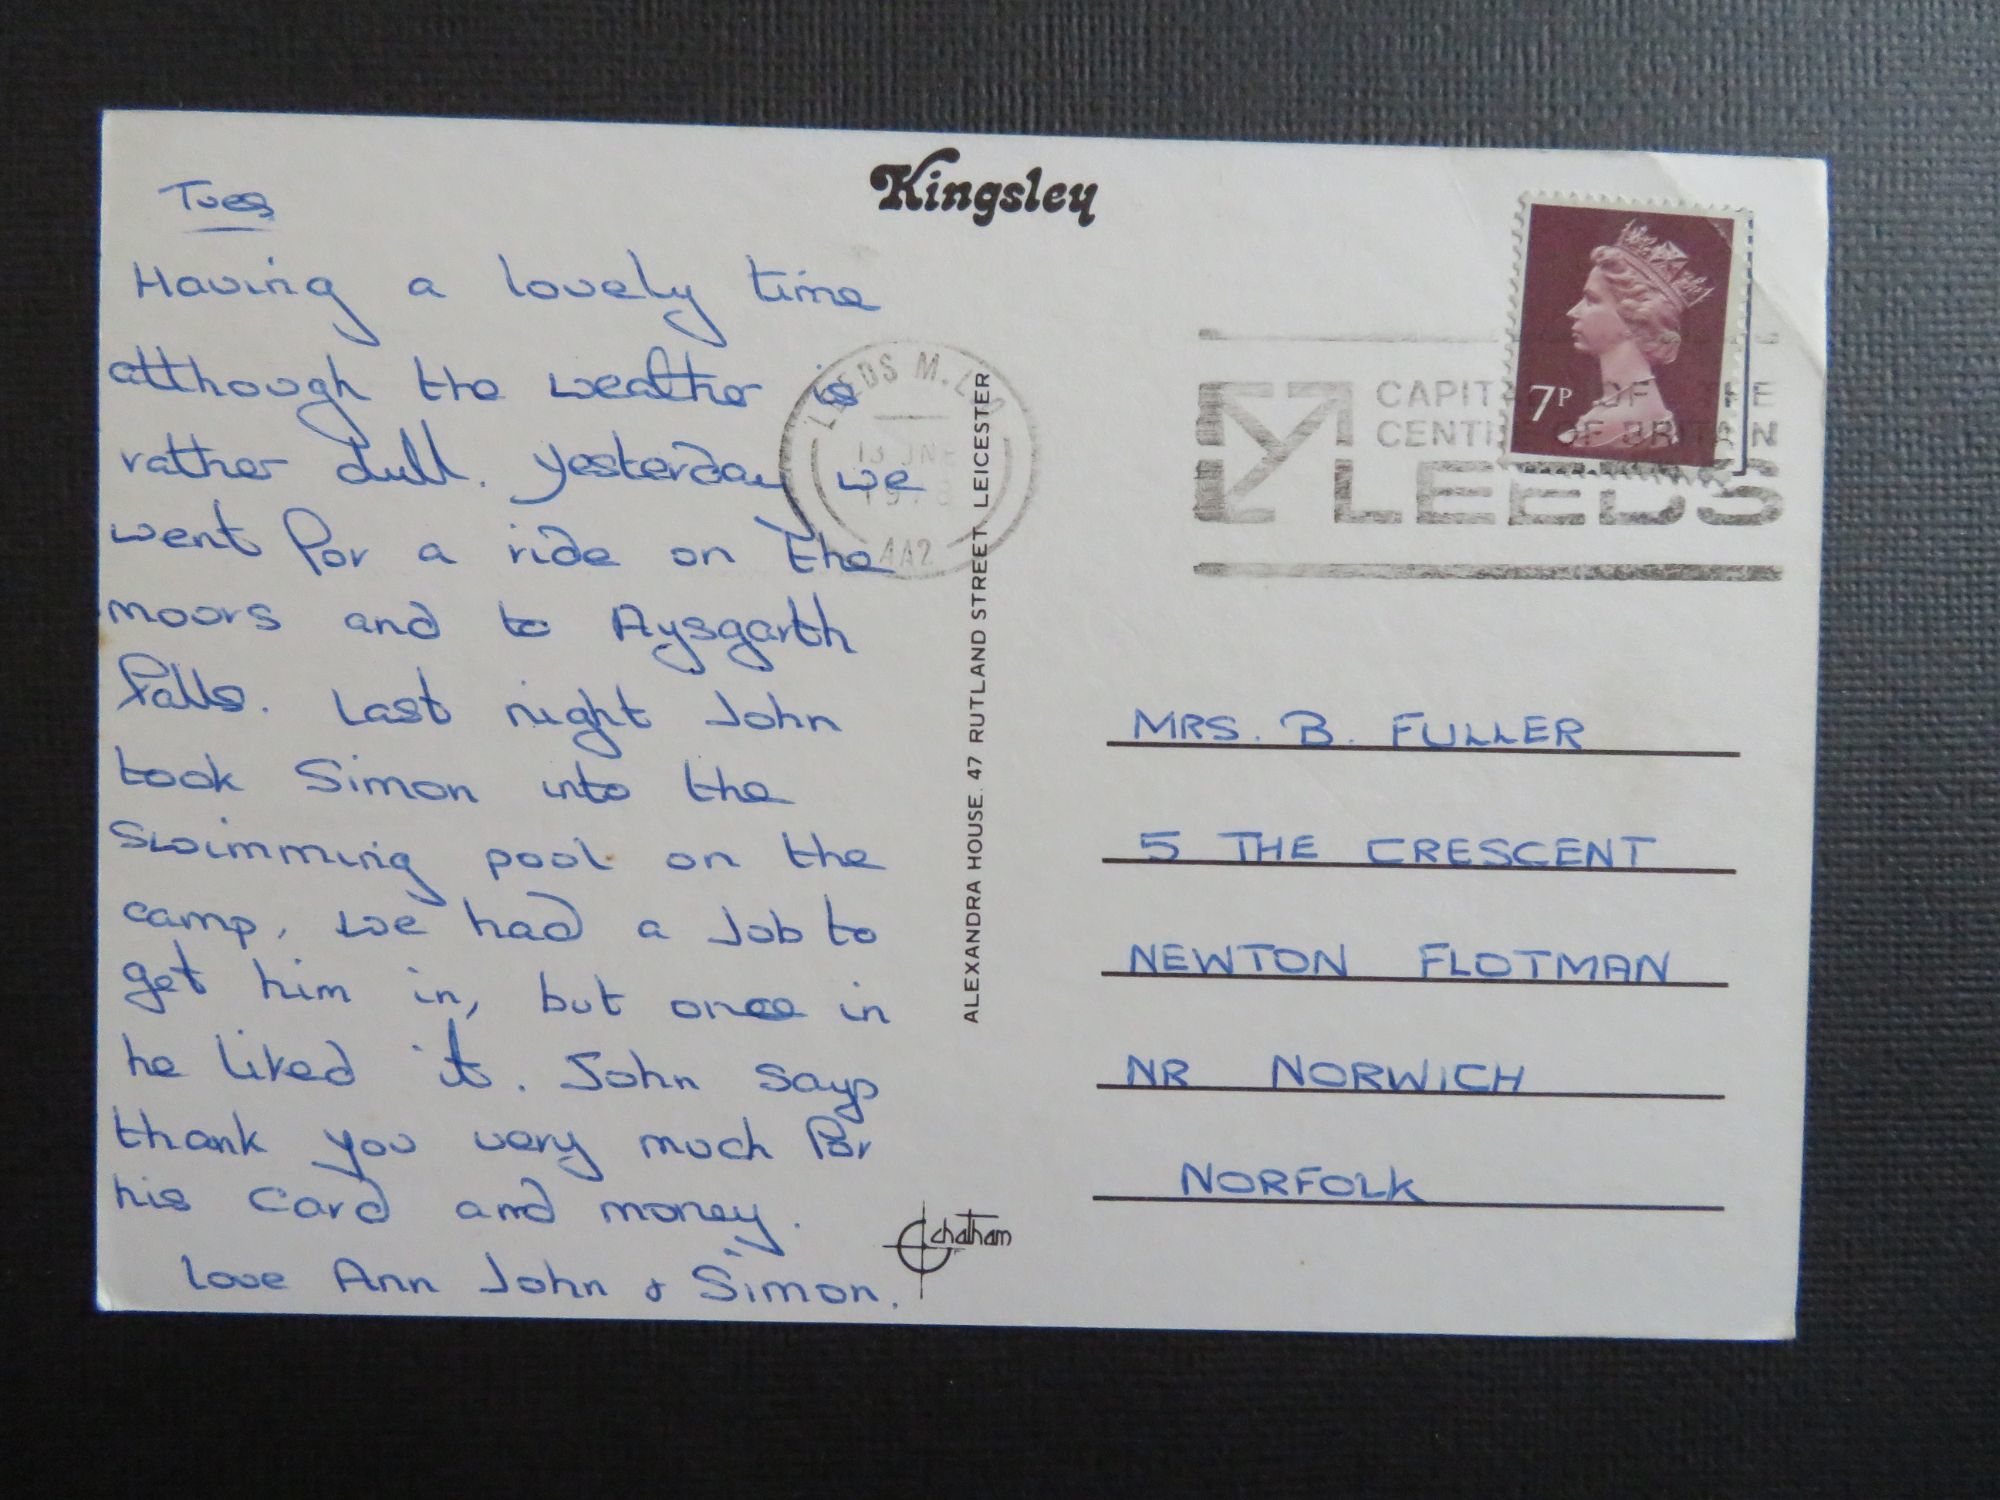 Kingsley
Tues
Having a lovely time
although the weather is
rather dull. Yesterday we
went for a ride on the
moors and to Aysgarth
falls. Last night John
took Simon into the
swimming pool on the
camp, we had a job to
get him in, but once in
he liked it. John says
thank you very much for
his card and money.
Love Ann John & Simon.
LEEDS M.L.O
13 JNE
AA2
ALEXANDRA HOUSE. 47 RUTLAND STREET LEICESTER
chatham
7P
CAPITAL OF THE
CENTRE OF BRITAIN
LEEDS
MRS. B. FULLER
5 THE CRESCENT
NEWTON FLOTMAN
NR NORWICH
NORFOLK